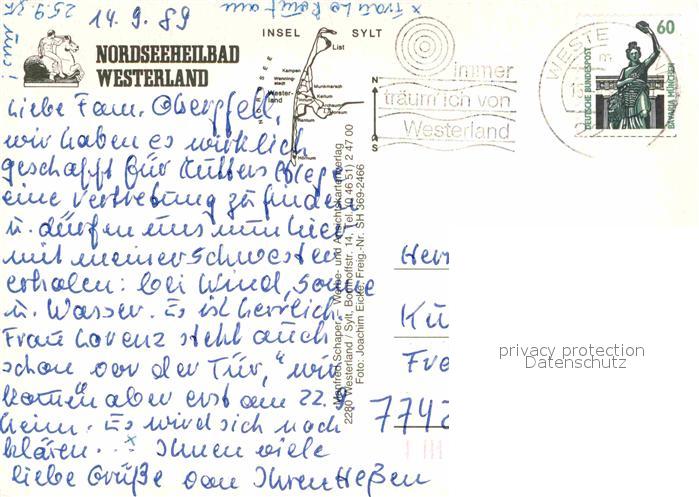 14.9.89
NORDSEEHEILBAD
WESTERLAND
INSEL SYLT
List
Kampen
Wenning-
stedt
Munkmarsch
Wester-
land
Keitum
Archsum
Morsum
Rantum
Hörnum
N
S
immer
träum ich von
Westerland
60
DEUTSCHE BUNDESPOST
BAVARIA MÜNCHEN
Liebe Fam. Obergfell,
wir haben es wirklich
geschafft für Mutters Pflege
eine Vertretung zu finden
u. dürfen uns nun hier
mit meiner Schwester
erholen: bei Wind, Sonne
u. Wasser. Es ist herrlich.
Frau Lorenz steht auch
schon vor der Tür, wir
kommen aber erst am 22.9.
heim. Es wird sich noch
klären... x Ihnen viele
liebe Grüße von Ihren Heßen
Manfred Schaper – Werbe- und Ansichtskartenverlag
2280 Westerland / Sylt, Bomhoffstr. 14, Tel. (0 46 51) 2 47 00
Foto: Joachim Eicke, Freig.-Nr. SH 369-2466
Herr
Fre
7742
privacy protection
Datenschutz